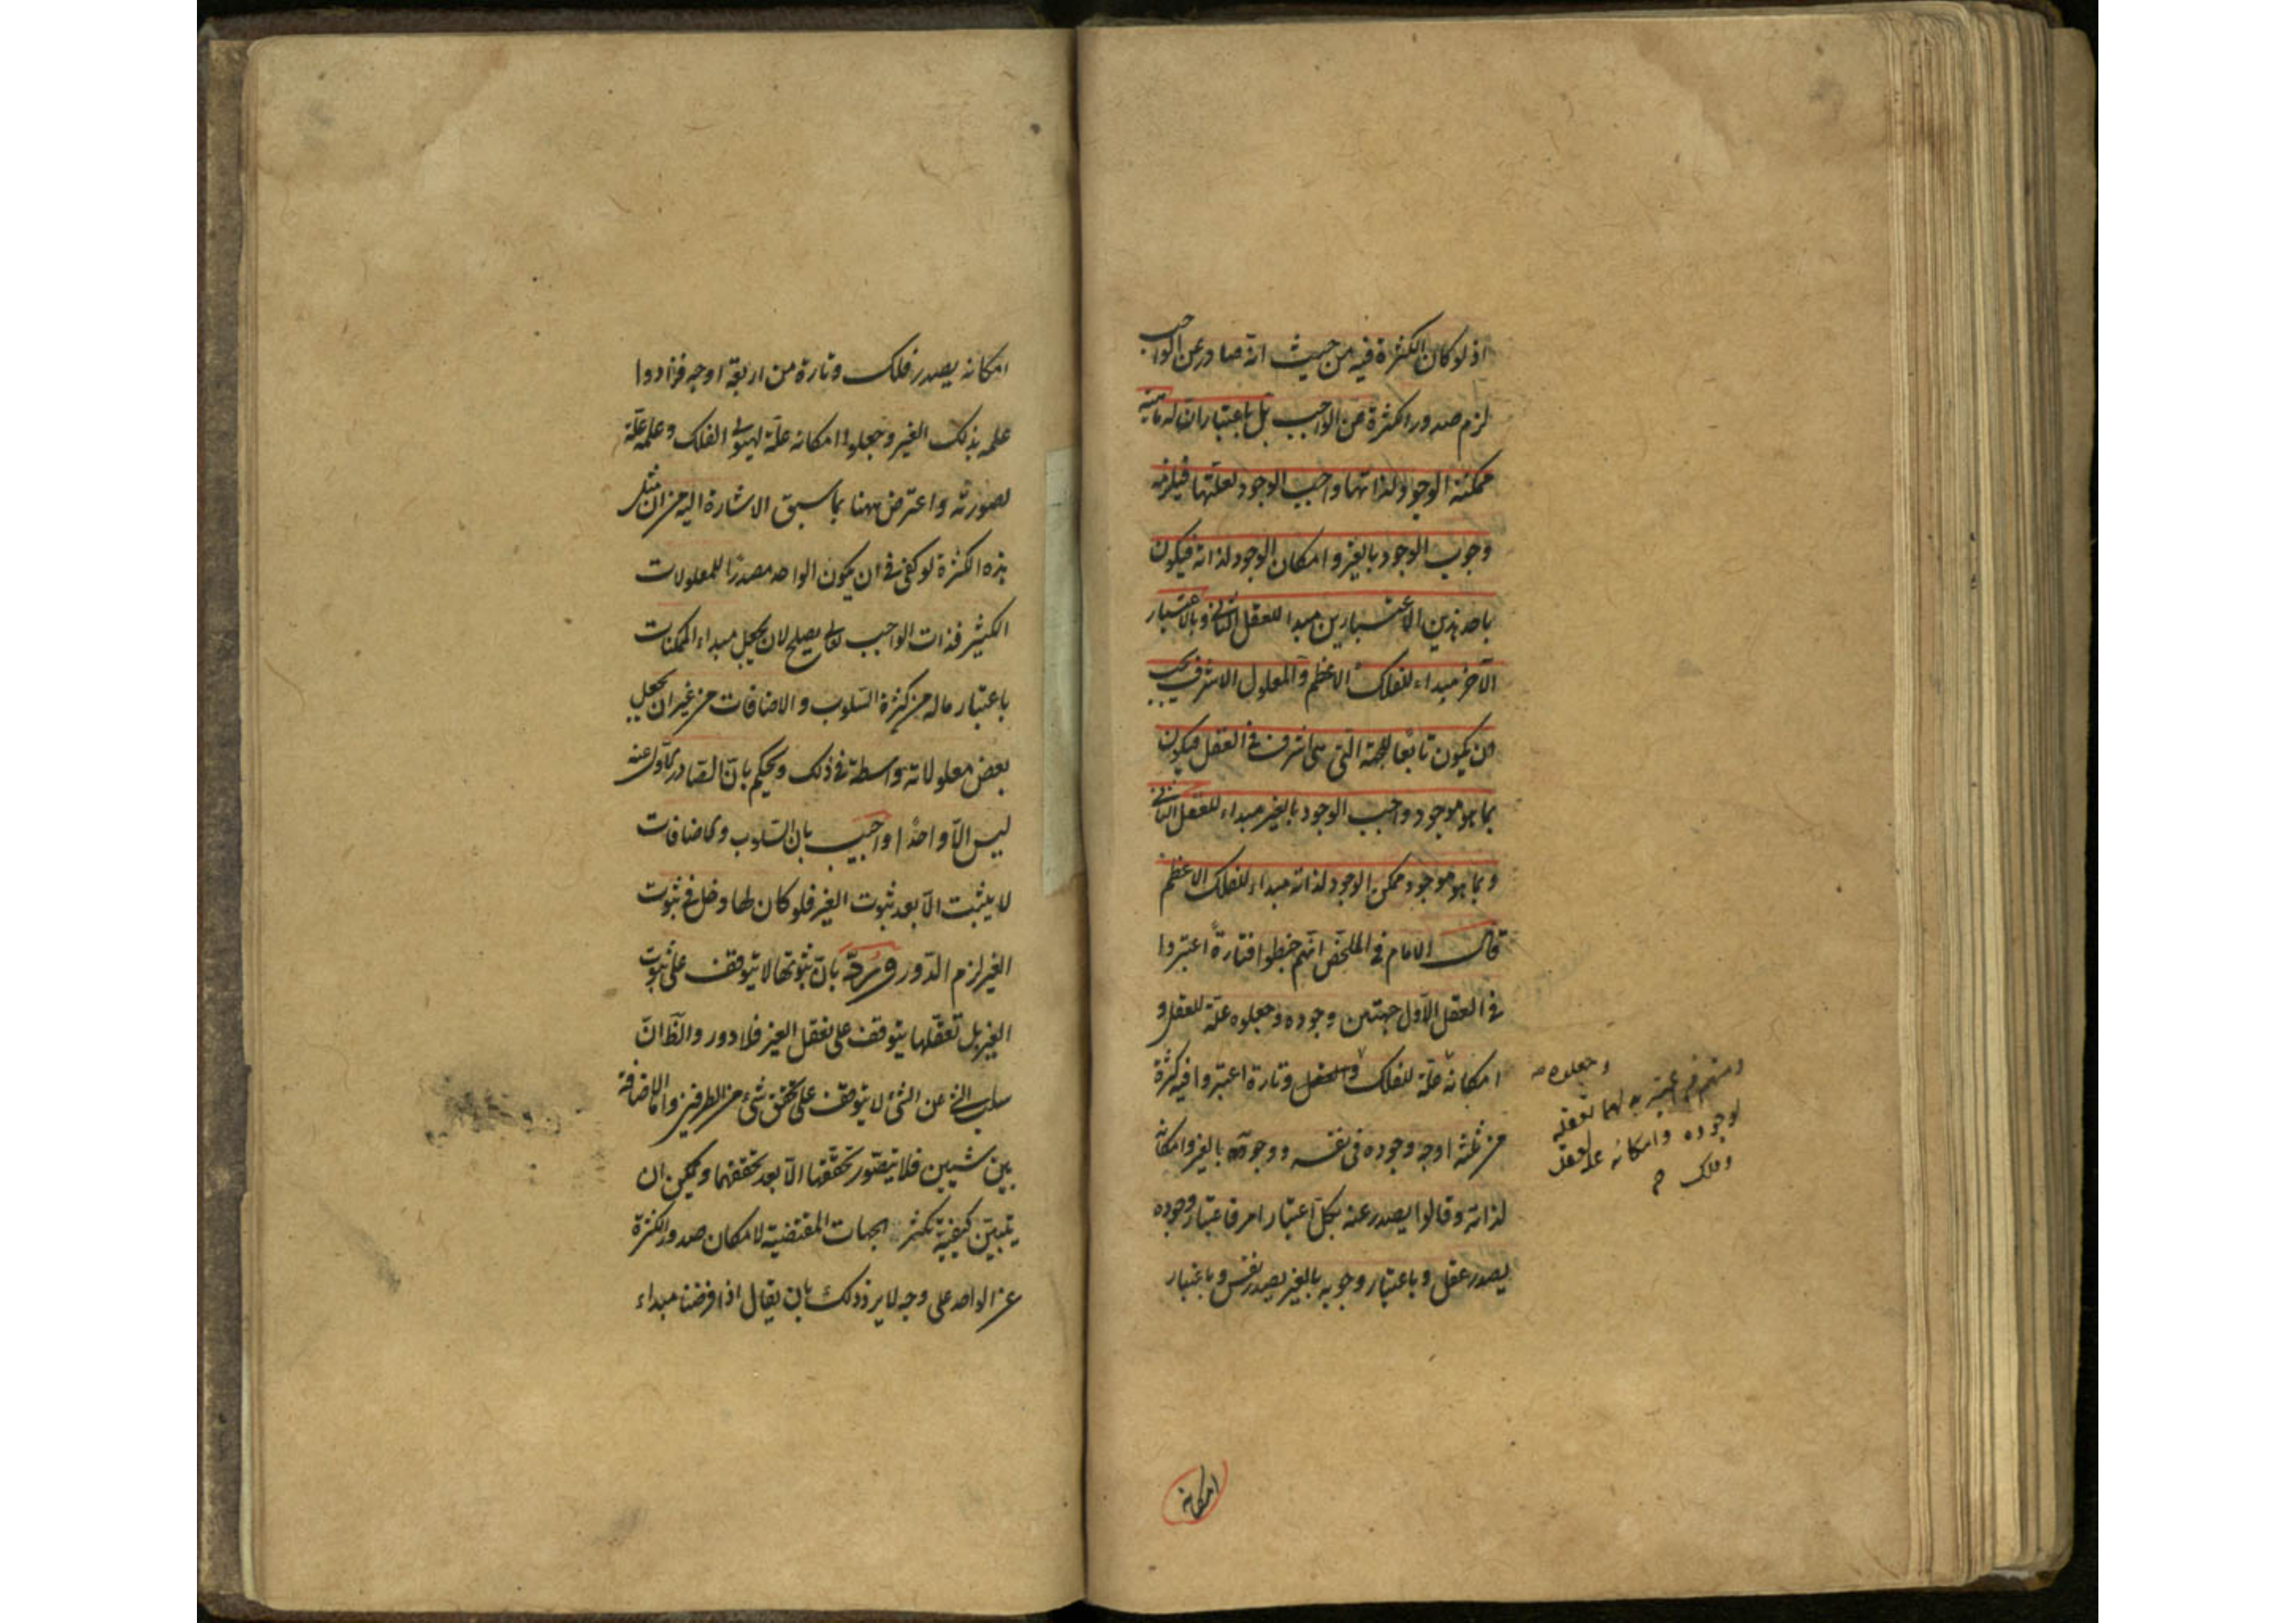 اذ لو كان الكثرة فيه من حيث انه صادر عن الواجب
لزم صدور الكثرة من الواجب بل باعتبار ان له ماهية
ممكنة الوجود لذاتها واجب الوجود لعلتها فيلزمه
وجوب الوجود بالغير وامكان الوجود لذاته فيكون
باحد هذين الاعتبارين مبداء للعقل الثاني وبالاعتبار
الآخر مبداء للفلك الاعظم والمعلول الاشرف يجب
ان يكون تابعا للجهة التي هى اشرف فى العقل فيكون
بما هو موجود واجب الوجود بالغير مبداء للعقل الثاني
وبما هو موجود ممكن الوجود لذاته مبداء للفلك الاعظم
قال الامام فى الملخص انهم خبطوا فتارةً اعتبروا
فى العقل الاول جهتين وجوده وجعلوه علة للعقل و
امكانه علة للفلك والعقل وتارة اعتبروا فيه كثرة
من ثلثة اوجه وجوده فى نفسه ووجوبه بالغير وامكانه
لذاته وقالوا يصدر عنه بكل اعتبار امر فباعتبار وجوده
يصدر عقل وباعتبار وجوبه بالغير يصدر نفس وباعتبار
وجعلوه
ومنهم من اعتبر بدلهما تعقله
لوجوده وامكانه علة لعقل
وفلك
امكانه
امكانه يصدر فلك وتارة من اربعة اوجه فزادوا
علمه بذلك الغير وجعلوا امكانه علة لهيولى الفلك وعلمه علة
لصورته واعترض ههنا بما سبق الاشارة اليه من ان مثل
هذه الكثرة لو كفى فى ان يكون الواحد مصدرًا للمعلولات
الكثير فذات الواجب تعالى يصلح لان يجعل مبداء الممكنات
باعتبار ماله من كثرة السلوب والاضافات من غير ان يجعل
بعض معلولاته واسطة فى ذلك ويحكم بان الصادر الاول عنه
ليس الا واحدًا واجيب بان السلوب والاضافات
لا يثبت الا بعد ثبوت الغير فلو كان لها دخل فى ثبوت
الغير لزم الدور ورُدّ بان ثبوتها لا يتوقف على ثبوت
الغير بل تعقلها يتوقف على تعقل الغير فلا دور والظ ان
سلب الشئ عن الشئ لا يتوقف على تحقق شئ من الطرفين واما الاضافة
بين شيئين فلا يتصور تحققها الا بعد تحققهما ويمكن ان
يتبين كيفية تكثر الجهات المقتضية لامكان صدور الكثرة
عن الواحد على وجه لا يرد ذلك بان يقال اذا فرضنا مبداء